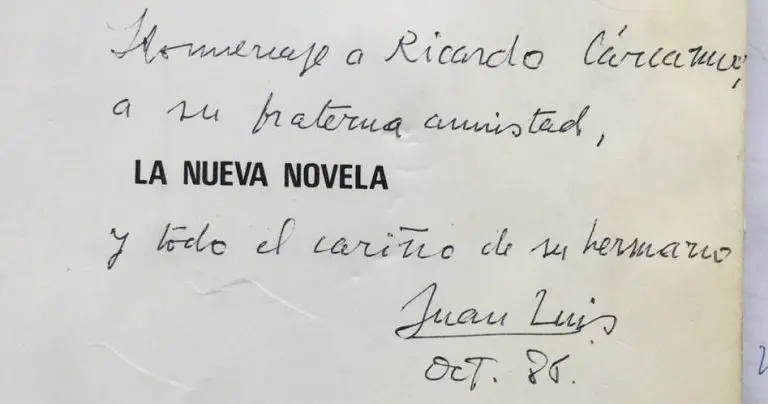 Homenaje a Ricardo Cárcamo,
a su fraterna amistad,
LA NUEVA NOVELA
y todo el cariño de su hermano
Juan Luis
Oct. 86.